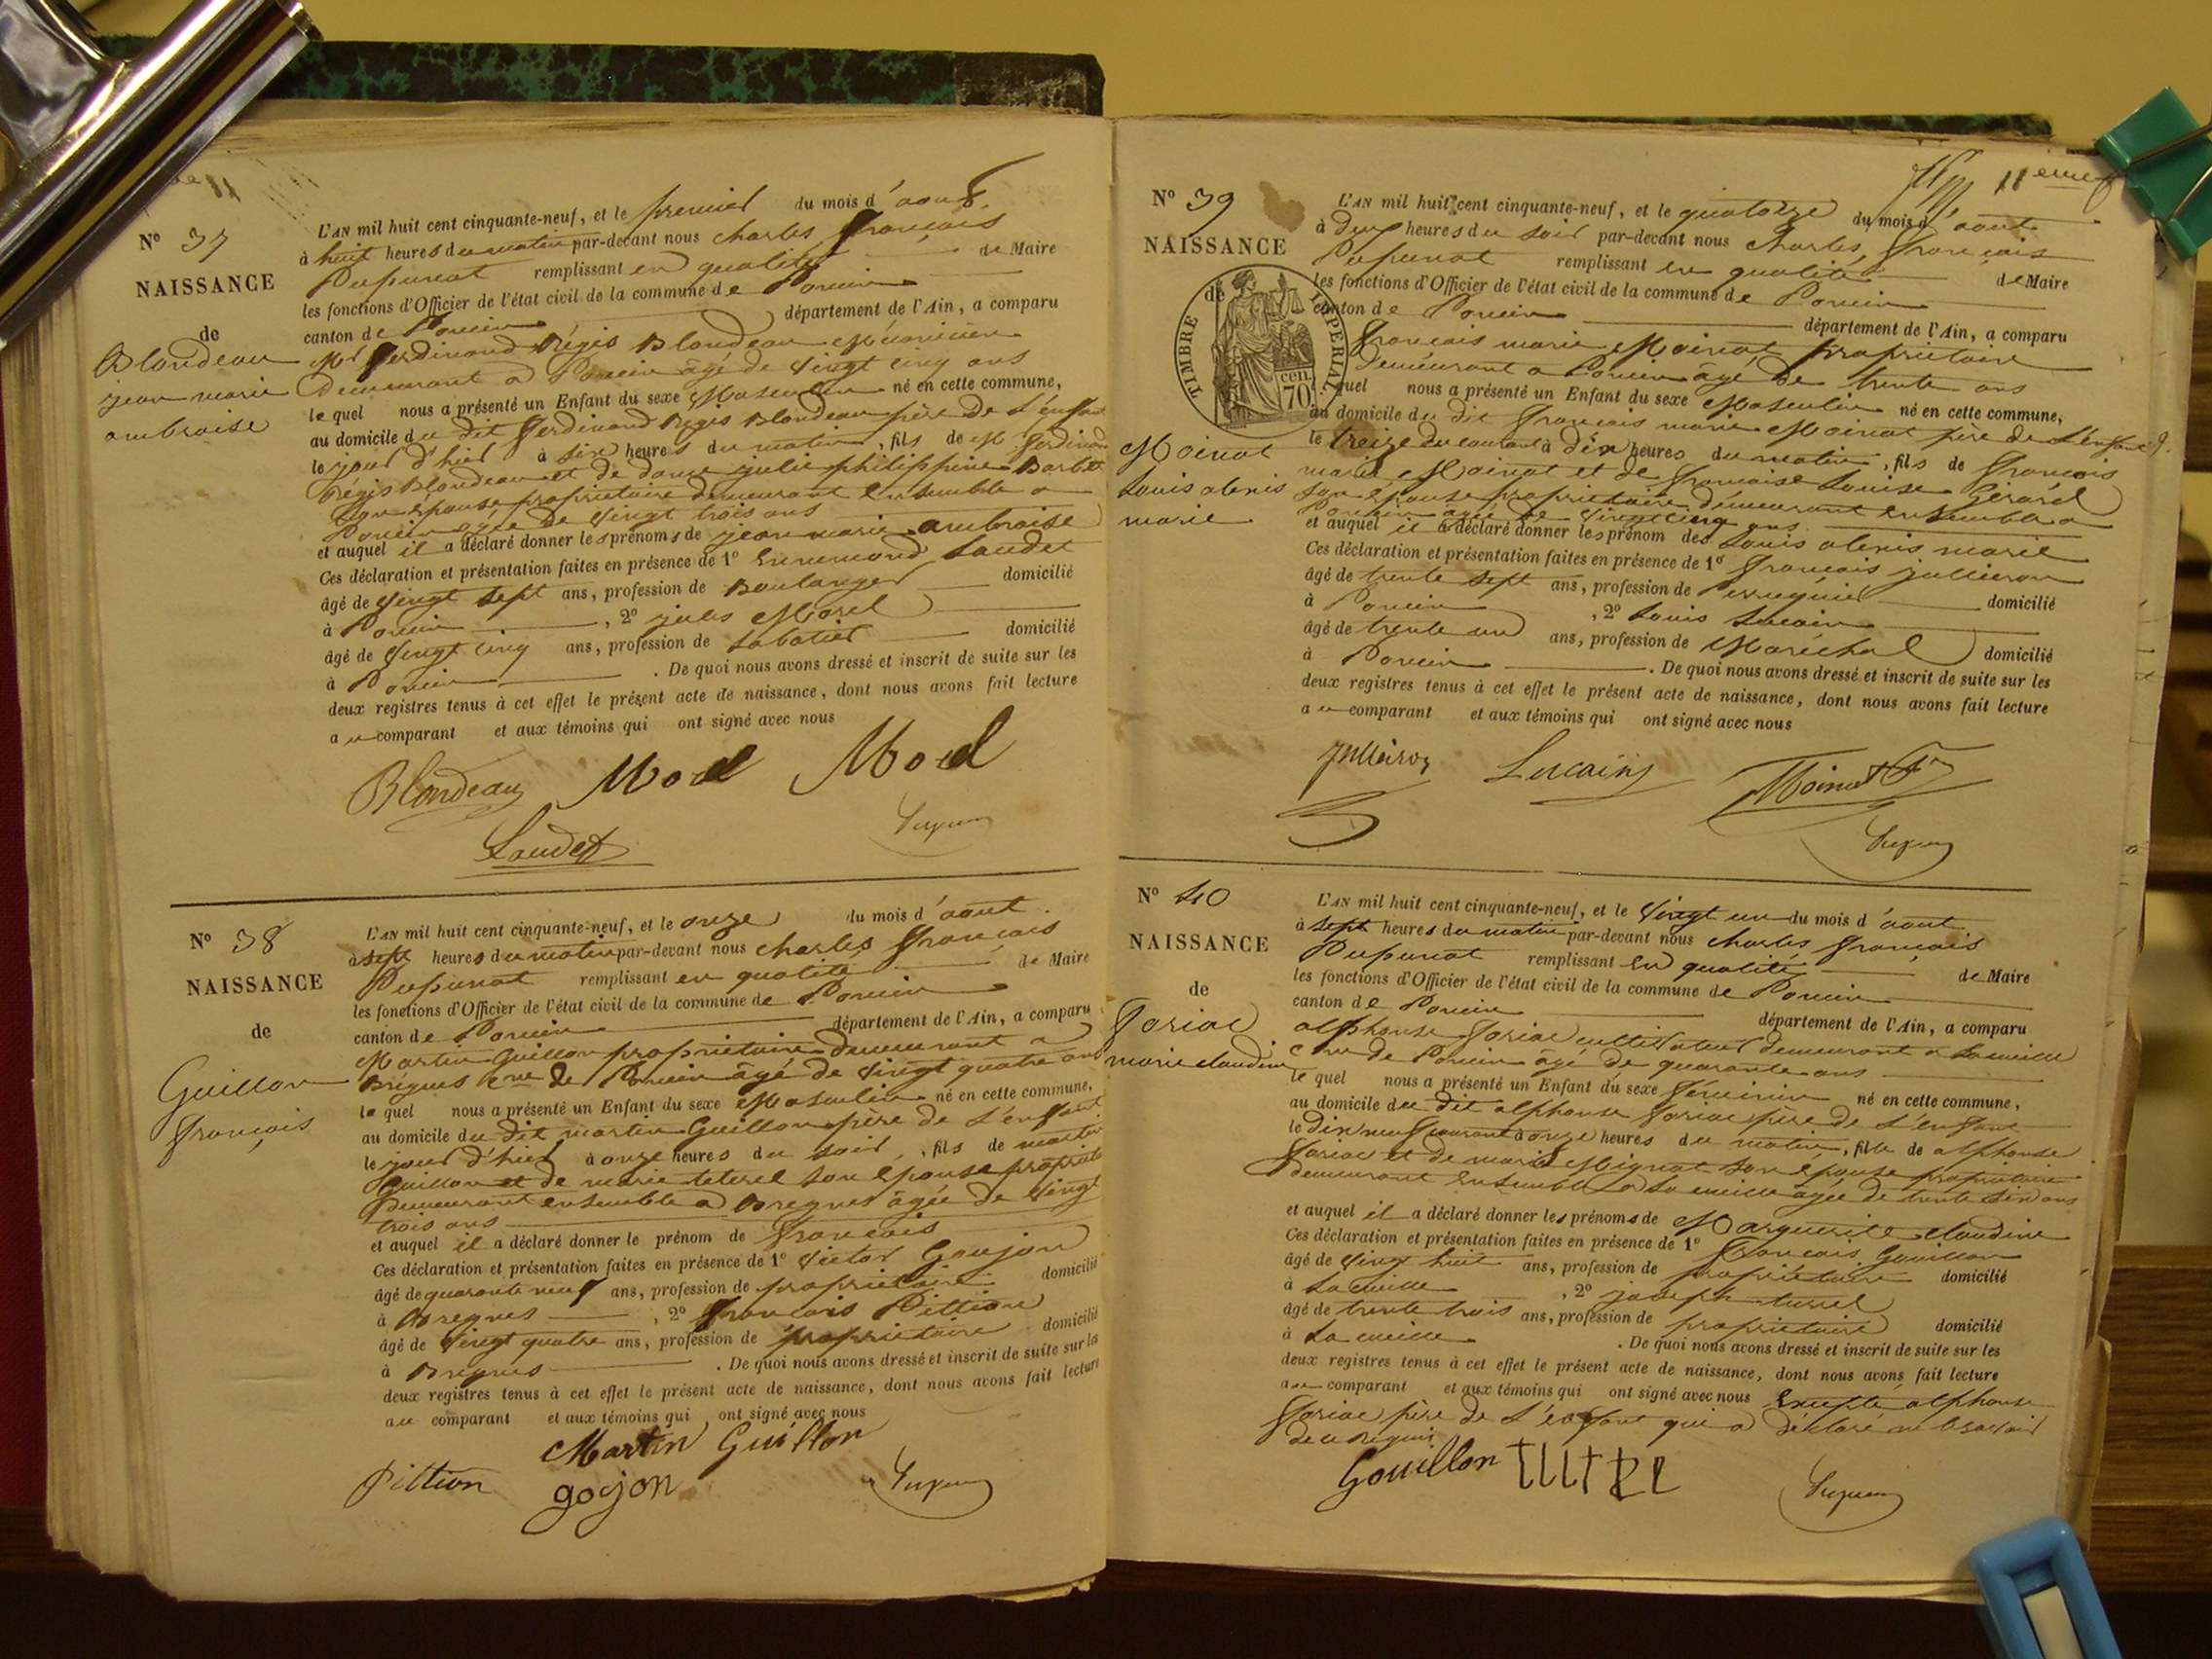 N° 37
NAISSANCE
de
Blondeau
jean marie
ambroise
L'AN mil huit cent cinquante-neuf, et le premier du mois d'aout
à huit heures du matin par-devant nous Charles François
Dupunat remplissant en qualité de Maire
les fonctions d'Officier de l'état civil de la commune de Poncin
canton de Poncin département de l'Ain, a comparu
Mr ferdinand Régis Blondeau Mécanicien
demeurant a Poncin âgé de vingt cinq ans
le quel nous a présenté un Enfant du sexe Masculin né en cette commune,
au domicile du dit ferdinand Régis Blondeau père de l'enfant
le jour d'hier à six heures du matin, fils de Mr ferdinand
Régis Blondeau et de dame julie philippine Barbet
son épouse, propriétaire demeurant ensemble a
Poncin agée de vingt trois ans
et auquel il a déclaré donner les prénoms de jean marie ambroise
Ces déclaration et présentation faites en présence de 1° Ennemond Laudet
âgé de vingt sept ans, profession de Boulanger domicilié
à Poncin, 2° jules Morel
âgé de vingt cinq ans, profession de Sabotier domicilié
à Poncin. De quoi nous avons dressé et inscrit de suite sur les
deux registres tenus à cet effet le présent acte de naissance, dont nous avons fait lecture
au comparant et aux témoins qui ont signé avec nous
Blondeau Morel Morel
Laudet
N° 38
NAISSANCE
de
Guillon
François
L'AN mil huit cent cinquante-neuf, et le onze du mois d'aout
à sept heures du matin par-devant nous Charles, François
Dupunat remplissant en qualité de Maire
les fonctions d'Officier de l'état civil de la commune de Poncin
canton de Poncin département de l'Ain, a comparu
Martin Guillon propriétaire demeurant a
Brégnes cne de Poncin âgé de vingt quatre ans
le quel nous a présenté un Enfant du sexe Masculin né en cette commune,
au domicile du dit martin Guillon père de l'enfant
le jour d'hier à onze heures du soir, fils de martin
Guillon et de marie son épouse propriétaire
demeurant ensemble a Bregnes âgée de vingt
trois ans
et auquel il a déclaré donner le prénom de François
Ces déclaration et présentation faites en présence de 1° Victor Goujon
âgé de quarante neuf ans, profession de propriétaire domicilié
à Bregnes, 2° François Pittion
âgé de vingt quatre ans, profession de propriétaire domicilié
à Bregnes. De quoi nous avons dressé et inscrit de suite sur les
deux registres tenus à cet effet le présent acte de naissance, dont nous avons fait lecture
au comparant et aux témoins qui ont signé avec nous
Martin Guillon
Pittion goujon
11eme
N° 39
NAISSANCE
de
TIMBRE IMPERIAL
70 cen.
Moinat
Louis alexis
marie
L'AN mil huit cent cinquante-neuf, et le quatorze du mois d'aout
à deux heures du soir par-devant nous Charles, François
Dupunat remplissant en qualité de Maire
les fonctions d'Officier de l'état civil de la commune de Poncin
canton de Poncin département de l'Ain, a comparu
François marie Moinat propriétaire
demeurant a Poncin âgé de trente ans
le quel nous a présenté un Enfant du sexe Masculin né en cette commune,
au domicile du dit François marie Moinat père de l'enfant
le treize du courant à dix heures du matin, fils de François
marie Moinat et de Françoise Louise Girard
son épouse propriétaire demeurant ensemble a
Poncin agée de vingt cinq ans
et auquel il a déclaré donner les prénom des Louis alexis marie
Ces déclaration et présentation faites en présence de 1° François jullieron
âgé de trente sept ans, profession de Perruquier domicilié
à Poncin, 2° Louis Lucain
âgé de trente un ans, profession de Maréchal domicilié
à Poncin. De quoi nous avons dressé et inscrit de suite sur les
deux registres tenus à cet effet le présent acte de naissance, dont nous avons fait lecture
au comparant et aux témoins qui ont signé avec nous
Julliéron Lucain Moinat
N° 40
NAISSANCE
de
Soriac
marie claudine
L'AN mil huit cent cinquante-neuf, et le vingt un du mois d'aout
à sept heures du matin par-devant nous Charles, François
Dupunat remplissant en qualité de Maire
les fonctions d'Officier de l'état civil de la commune de Poncin
canton de Poncin département de l'Ain, a comparu
alphonse Soriac cultivateur demeurant a Lacueille
cne de Poncin âgé de quarante ans
le quel nous a présenté un Enfant du sexe féminin né en cette commune,
au domicile du dit alphonse Soriac père de l'enfant
le dix neuf courant à onze heures du matin, fille de alphonse
Soriac et de marie Mignat son épouse propriétaire
demeurant ensemble a La cueille agée de trente six ans
et auquel il a déclaré donner les prénoms de Marguerite claudine
Ces déclaration et présentation faites en présence de 1° François Gouillon
âgé de vingt huit ans, profession de propriétaire domicilié
à La cueille, 2° joseph turrel
âgé de trente trois ans, profession de propriétaire domicilié
à La cueille. De quoi nous avons dressé et inscrit de suite sur les
deux registres tenus à cet effet le présent acte de naissance, dont nous avons fait lecture
au comparant et aux témoins qui ont signé avec nous Excepté alphonse
Soriac père de l'enfant qui a déclaré ne le savoir
de ce requis
Gouillon